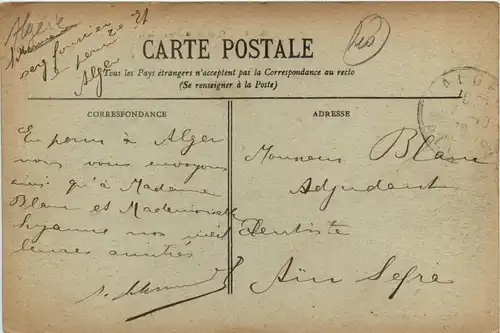 Algérie
CARTE POSTALE
Tous les Pays étrangers n'acceptent pas la Correspondance au recto
(Se renseigner à la Poste)
CORRESPONDANCE
En perm à Alger
nous vous envoyons
ainsi qu'à Madame
Blanc et Mademoiselle
Suzanne nos meil
leures amitiés
ADRESSE
Monsieur Blanc
Adjudant
Dentiste
Aïn Sefra